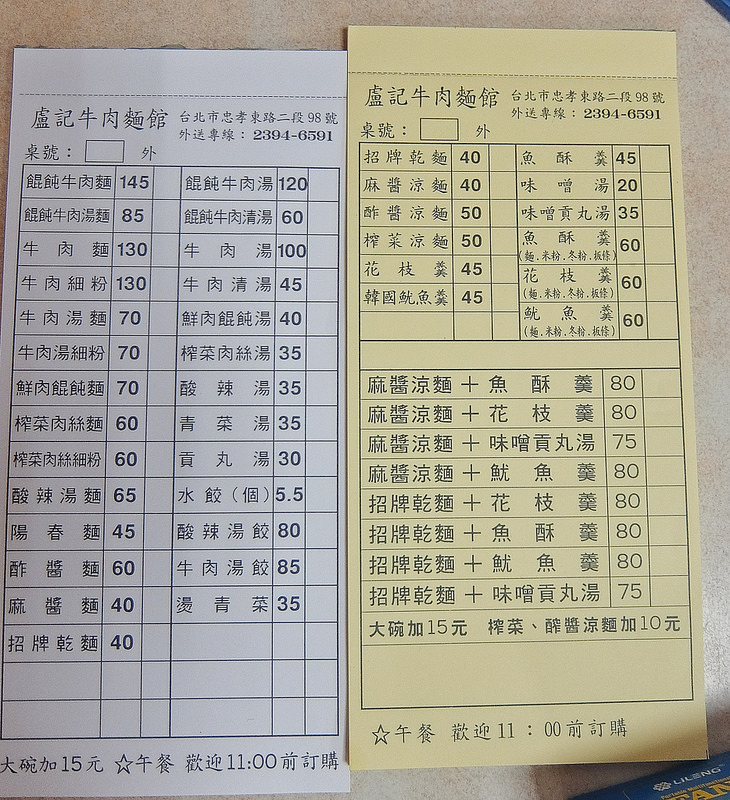 盧記牛肉麵館 台北市忠孝東路二段98號
外送專線：2394-6591
桌號： 外
餛飩牛肉麵 145 餛飩牛肉湯 120
餛飩牛肉湯麵 85 餛飩牛肉清湯 60
牛肉麵 130 牛肉湯 100
牛肉細粉 130 牛肉清湯 45
牛肉湯麵 70 鮮肉餛飩湯 40
牛肉湯細粉 70 榨菜肉絲湯 35
鮮肉餛飩麵 70 酸辣湯 35
榨菜肉絲麵 60 青菜湯 35
榨菜肉絲細粉 60 貢丸湯 30
酸辣湯麵 65 水餃(個) 5.5
陽春麵 45 酸辣湯餃 80
酢醬麵 60 牛肉湯餃 85
麻醬麵 40 燙青菜 35
招牌乾麵 40
大碗加15元 ☆午餐 歡迎11:00前訂購
盧記牛肉麵館 台北市忠孝東路二段98號
外送專線：2394-6591
桌號： 外
招牌乾麵 40 魚酥羹 45
麻醬涼麵 40 味噌湯 20
酢醬涼麵 50 味噌貢丸湯 35
榨菜涼麵 50 魚酥羹 60
(麵.米粉.冬粉.板條)
花枝羹 45 花枝羹 60
(麵.米粉.冬粉.板條)
韓國魷魚羹 45 魷魚羹 60
(麵.米粉.冬粉.板條)
麻醬涼麵＋魚酥羹 80
麻醬涼麵＋花枝羹 80
麻醬涼麵＋味噌貢丸湯 75
麻醬涼麵＋魷魚羹 80
招牌乾麵＋花枝羹 80
招牌乾麵＋魚酥羹 80
招牌乾麵＋魷魚羹 80
招牌乾麵＋味噌貢丸湯 75
大碗加15元 榨菜、酢醬涼麵加10元
☆午餐 歡迎11：00前訂購
LILENG